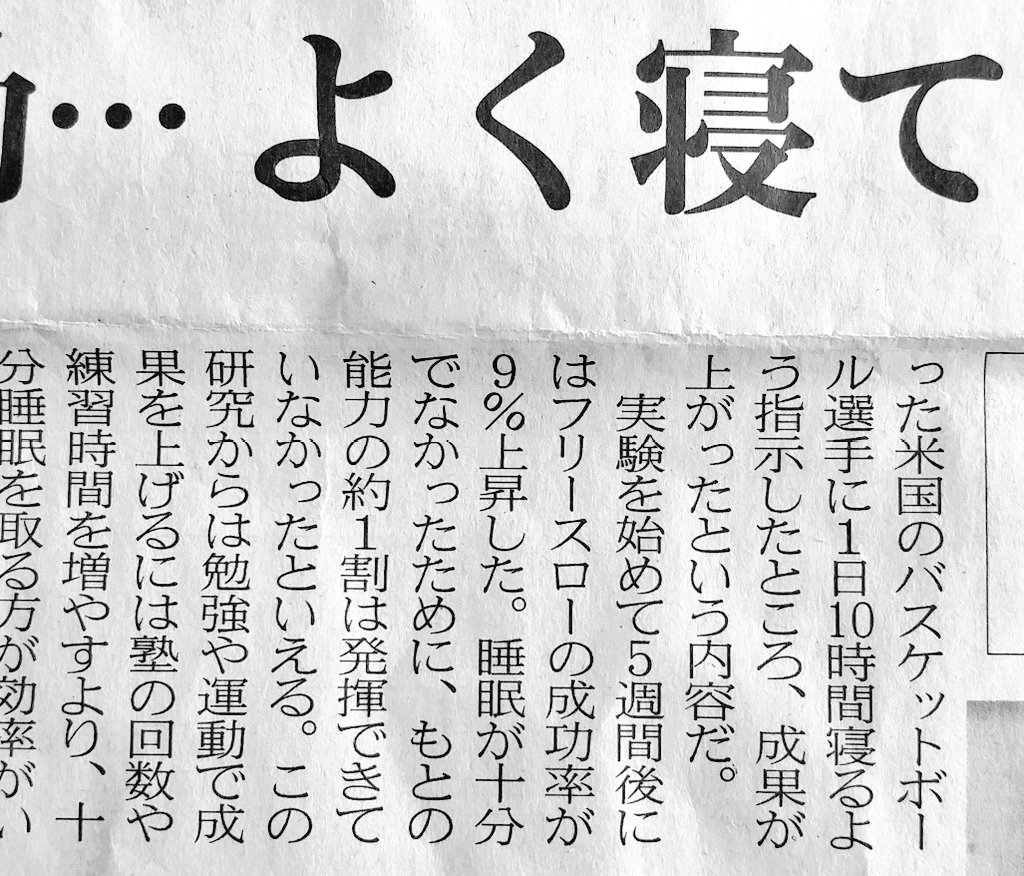 …よく寝て
った米国のバスケットボー
ル選手に1日10時間寝るよ
う指示したところ、成果が
上がったという内容だ。
実験を始めて5週間後に
はフリースローの成功率が
9%上昇した。睡眠が十分
でなかったために、もとの
能力の約1割は発揮できて
いなかったといえる。この
研究からは勉強や運動で成
果を上げるには塾の回数や
練習時間を増やすより、十
分睡眠を取る方が効率がい